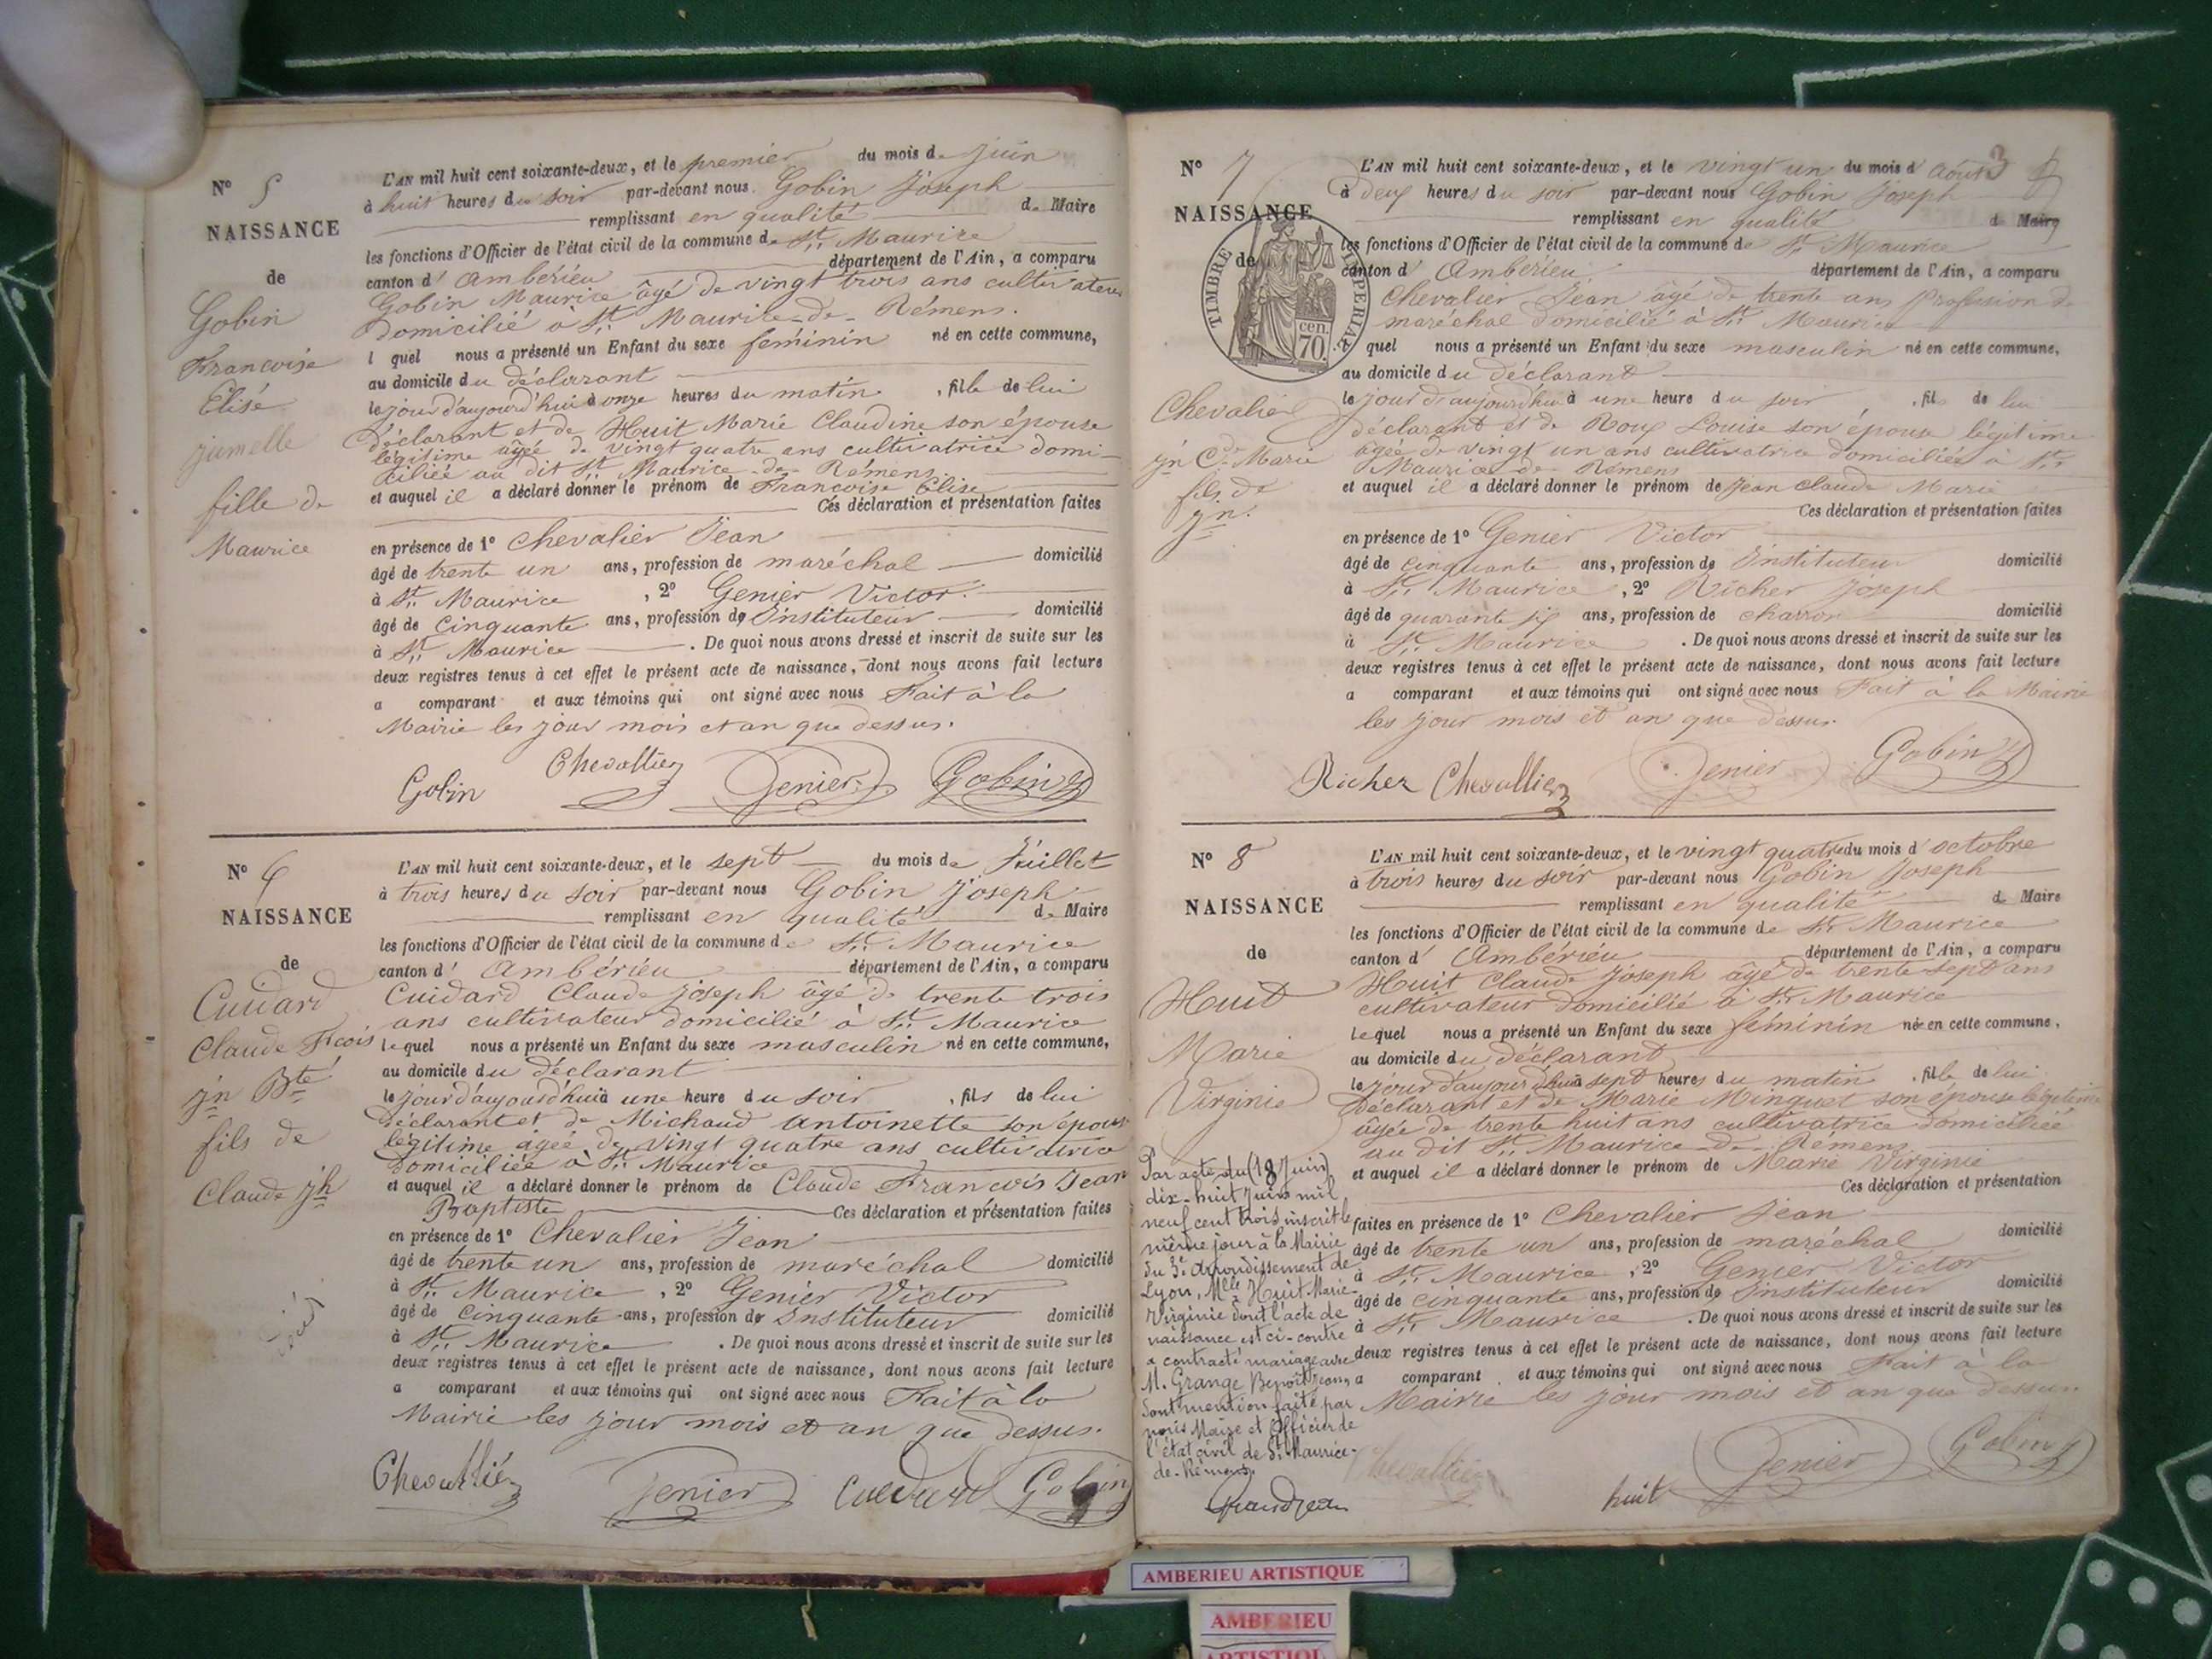 N° 5
NAISSANCE
de
Gobin
Francoise
Elisé
jumelle
fille de
Maurice
L'AN mil huit cent soixante-deux, et le premier du mois de Juin
à huit heures du soir par-devant nous Gobin Joseph
remplissant en qualité de Maire
les fonctions d'Officier de l'état civil de la commune de St. Maurice
canton d' Ambérieu département de l'Ain, a comparu
Gobin Maurice âgé de vingt trois ans cultivateur
domicilié à St. Maurice-de-Rémens.
l quel nous a présenté un Enfant du sexe féminin né en cette commune,
au domicile du déclarant
le jour d'aujourd'hui à onze heures du matin, fille de lui
déclarant et de Huit Marie Claudine son épouse
légitime âgée de vingt quatre ans cultivatrice domi-
ciliée au dit St. Maurice-de-Rémens.
et auquel il a déclaré donner le prénom de Francoise Elise
Ces déclaration et présentation faites
en présence de 1° Chevalier Jean
âgé de trente un ans, profession de maréchal domicilié
à St. Maurice, 2° Genier Victor.
âgé de cinquante ans, profession de Instituteur domicilié
à St. Maurice. De quoi nous avons dressé et inscrit de suite sur les
deux registres tenus à cet effet le présent acte de naissance, dont nous avons fait lecture
a comparant et aux témoins qui ont signé avec nous Fait à la
Mairie les jour mois et an que dessus.
Gobin Chevallier Genier Gobin
N° 6
NAISSANCE
de
Cuidard
Claude Fcois
Jn Bte
fils de
Claude Jh
L'AN mil huit cent soixante-deux, et le sept du mois de Juillet
à trois heures du soir par-devant nous Gobin Joseph
remplissant en qualité de Maire
les fonctions d'Officier de l'état civil de la commune de St. Maurice
canton d' Ambérieu département de l'Ain, a comparu
Cuidard Claude Joseph âgé de trente trois
ans cultivateur domicilié à St. Maurice
lequel nous a présenté un Enfant du sexe masculin né en cette commune,
au domicile du déclarant
le jour d'aujourd'hui à une heure du soir, fils de lui
déclarant et de Michaud Antoinette son épouse
légitime âgée de vingt quatre ans cultivatrice
domiciliée à St. Maurice
et auquel il a déclaré donner le prénom de Claude Francois Jean
Baptiste Ces déclaration et présentation faites
en présence de 1° Chevalier Jean
âgé de trente un ans, profession de maréchal domicilié
à St. Maurice, 2° Genier Victor
âgé de cinquante ans, profession de Instituteur domicilié
à St. Maurice. De quoi nous avons dressé et inscrit de suite sur les
deux registres tenus à cet effet le présent acte de naissance, dont nous avons fait lecture
a comparant et aux témoins qui ont signé avec nous Fait à la
Mairie les jour mois et an que dessus.
Chevallier Genier Cuidard Gobin
N° 7
NAISSANCE
de
TIMBRE IMPERIAL
cen.
70.
Chevalier
Jn Cde Marie
fils de
Jn.
L'AN mil huit cent soixante-deux, et le vingt un du mois d' Aout 3
à deux heures du soir par-devant nous Gobin Joseph
remplissant en qualité de Maire
les fonctions d'Officier de l'état civil de la commune de St. Maurice
canton d' Ambérieu département de l'Ain, a comparu
Chevalier Jean âgé de trente ans profession de
maréchal domicilié à St. Maurice
quel nous a présenté un Enfant du sexe masculin né en cette commune,
au domicile du déclarant
le jour d'aujourd'hui à une heure du soir, fils de lui
déclarant et de Roux Louise son épouse légitime
âgée de vingt un ans cultivatrice domiciliée à St.
Maurice-de-Rémens
et auquel il a déclaré donner le prénom de Jean Claude Marie
Ces déclaration et présentation faites
en présence de 1° Genier Victor
âgé de cinquante ans, profession de Instituteur domicilié
à St. Maurice, 2° Richer Joseph
âgé de quarante six ans, profession de charron domicilié
à St. Maurice. De quoi nous avons dressé et inscrit de suite sur les
deux registres tenus à cet effet le présent acte de naissance, dont nous avons fait lecture
a comparant et aux témoins qui ont signé avec nous Fait à la Mairie
les jour mois et an que dessus.
Richer Chevallier Genier Gobin
N° 8
NAISSANCE
de
Huit
Marie
Virginie
Par acte du (18 Juin)
dix-huit Juin mil
neuf cent trois inscrit le
même jour à la Mairie
du 3e arrondissement de
Lyon, Mlle Huit Marie
Virginie dont l'acte de
naissance est ci-contre
a contracté mariage avec
M. Grange Benoît Jean,
dont mention faite par
nous Maire et Officier de
l'état civil de St. Maurice-
de-Rémens.
Grandjean
L'AN mil huit cent soixante-deux, et le vingt quatre du mois d' octobre
à trois heures du soir par-devant nous Gobin Joseph
remplissant en qualité de Maire
les fonctions d'Officier de l'état civil de la commune de St. Maurice
canton d' Ambérieu département de l'Ain, a comparu
Huit Claude Joseph âgé de trente sept ans
cultivateur domicilié à St. Maurice
lequel nous a présenté un Enfant du sexe féminin née en cette commune,
au domicile du déclarant
le jour d'aujourd'hui à sept heures du matin, fille de lui
déclarant et de Marie Minguet son épouse légitime
âgée de trente huit ans cultivatrice domiciliée
au dit St. Maurice-de-Rémens
et auquel il a déclaré donner le prénom de Marie Virginie
Ces déclaration et présentation
faites en présence de 1° Chevalier Jean
âgé de trente un ans, profession de maréchal domicilié
à St. Maurice, 2° Genier Victor
âgé de cinquante ans, profession de Instituteur domicilié
à St. Maurice. De quoi nous avons dressé et inscrit de suite sur les
deux registres tenus à cet effet le présent acte de naissance, dont nous avons fait lecture
a comparant et aux témoins qui ont signé avec nous Fait à la
Mairie les jour mois et an que dessus.
Chevallier huit Genier Gobin
AMBERIEU ARTISTIQUE
AMBERIEU
ARTISTIQUE